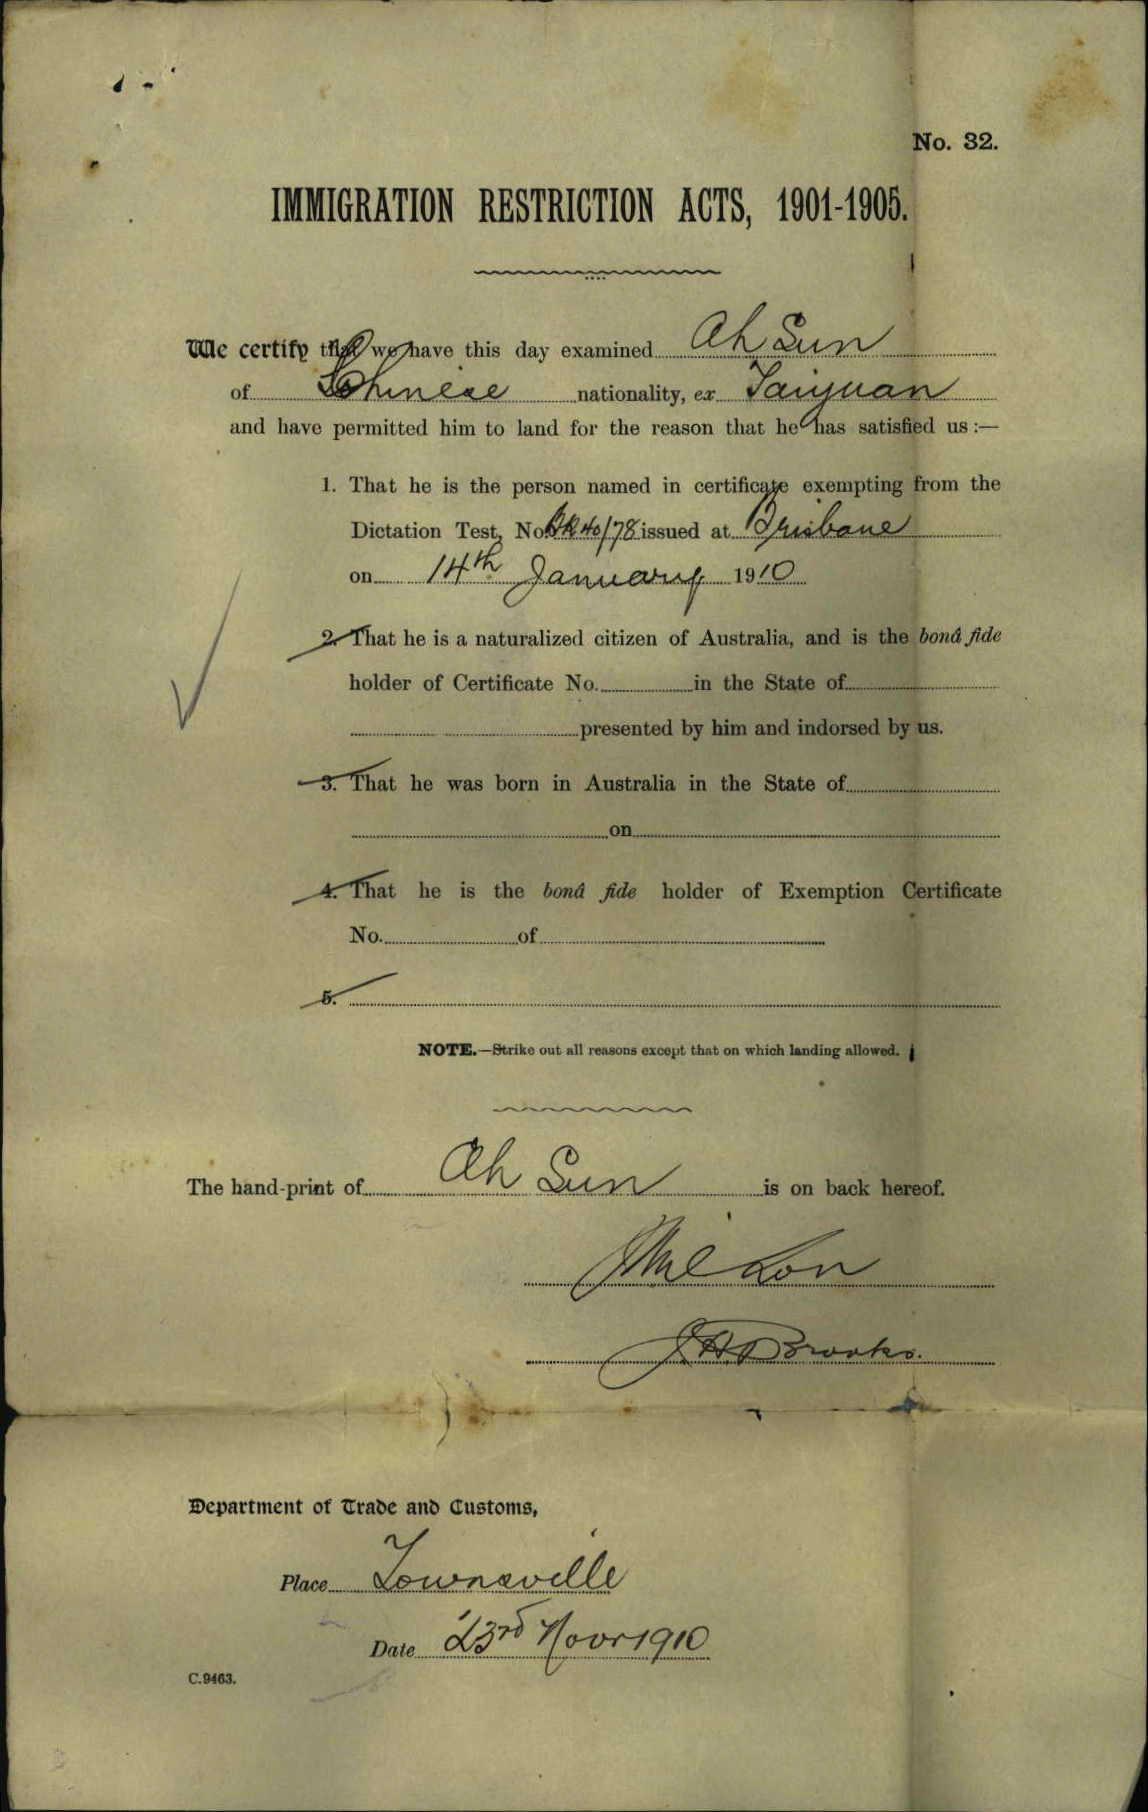 No. 32.
IMMIGRATION RESTRICTION ACTS, 1901-1905.
We certify that we have this day examined Ah Sun
of Chinese nationality, ex Taiyuan
and have permitted him to land for the reason that he has satisfied us :—
1. That he is the person named in certificate exempting from the
Dictation Test, No. BK 40/78 issued at Brisbane
on 14th January 1910
2. That he is a naturalized citizen of Australia, and is the bonâ fide
holder of Certificate No. in the State of
presented by him and indorsed by us.
3. That he was born in Australia in the State of
on
4. That he is the bonâ fide holder of Exemption Certificate
No. of
5.
NOTE.—Strike out all reasons except that on which landing allowed.
The hand-print of Ah Sun is on back hereof.
J.H. Brooks.
Department of Trade and Customs,
Place Townsville
Date 23rd Novr 1910
C.9463.